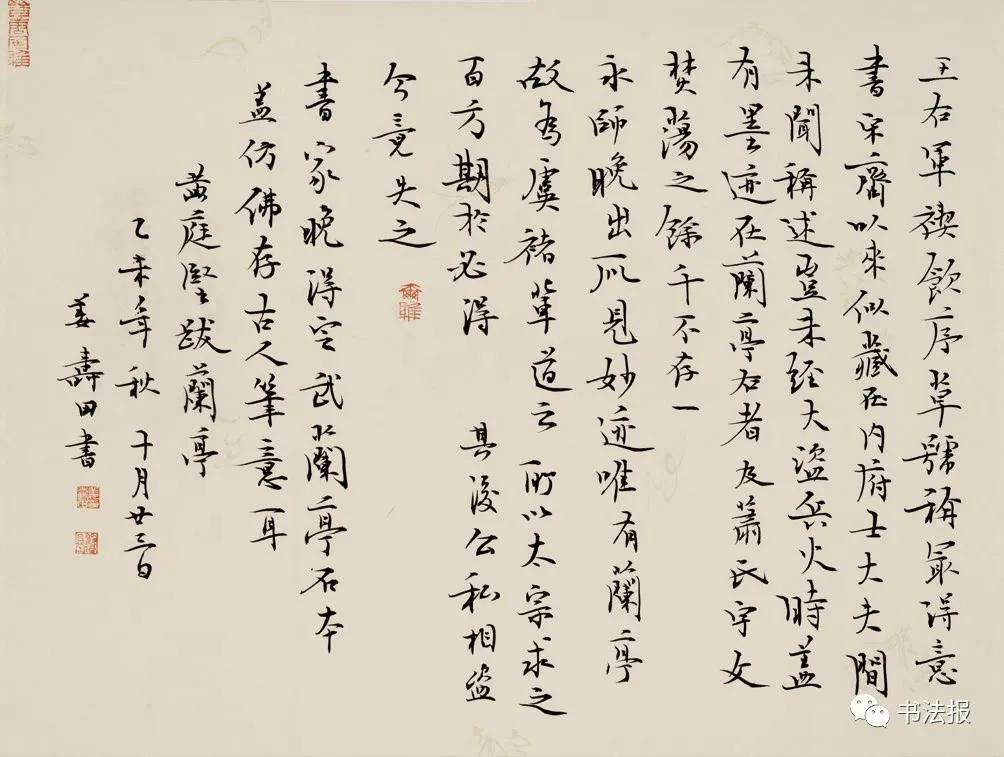 王右軍禊飲序草號稱最得意
書宋齊以來似藏在内府士大夫間
未聞稱述豈未經大盜兵火時蓋
有墨迹在蘭亭右者及蕭氏宇文
焚蕩之餘千不存一
永師晚出所見妙迹唯有蘭亭
故為虞褚輩道之所以太宗求之
百方期於必得 其後公私相盜
今竟失之
書家晚得定武蘭亭石本
蓋仿佛存古人筆意耳
黄庭堅跋蘭亭
乙未年秋 十月廿三日
姜壽田書
书法报